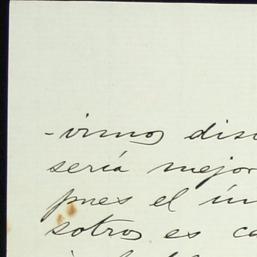 -vimos dis
sería mejor
pues el ín
sotros es ca